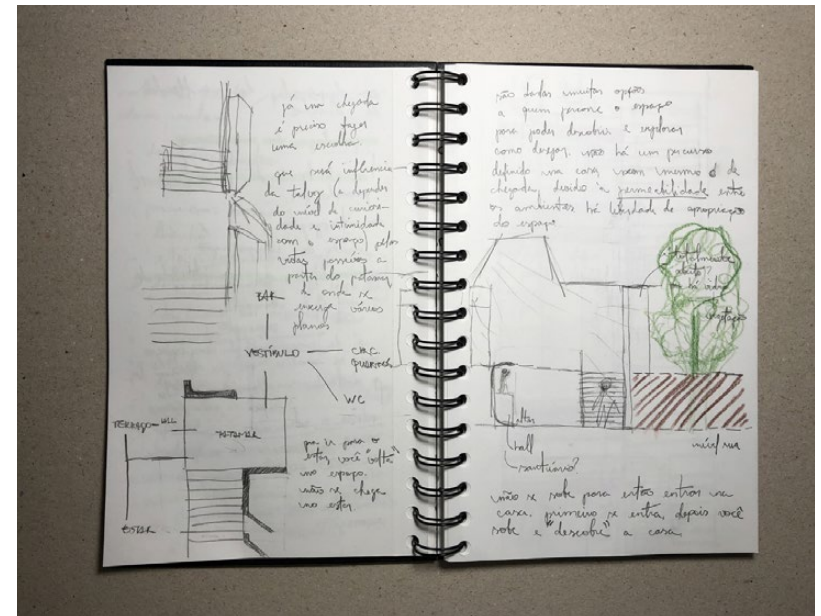 já na chegada
é preciso fazer
uma escolha.
que será influencia-
da talvez (a depender
do nível de curiosi-
dade e intimidade
com o espaço) pelas
vistas possíveis a
partir do patamar
de onde se
enxerga vários
planos
BAR
VESTÍBULO
CIRC.
QUARTOS
WC
TERRAÇO
HALL
PATAMAR
ESTAR
pra ir para o
estar, você "volta"
no espaço.
não se chega
no estar.
são dadas muitas opções
a quem percorre o espaço
para poder descobrir e explorar
como desejar. não há um percurso
definido na casa, nem mesmo o de
chegada, devido à permeabilidade entre
os ambientes há liberdade de apropriação
do espaço
totalmente
aberto?
ou há vidro
vegetação
altar
hall
santuário?
nível rua
não se sobe para então entrar na
casa. primeiro se entra, depois você
sobe e "descobre" a casa